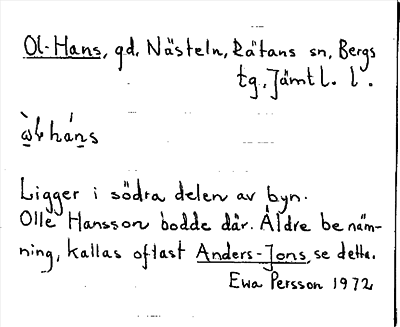 Ol-Hans, gd, Nästeln, Rätans sn, Bergs
tg, Jämtl. l.
Ligger i södra delen av byn.
Olle Hansson bodde där. Äldre benäm-
ning, kallas oftast Anders-Jons, se detta.
Ewa Persson 1972